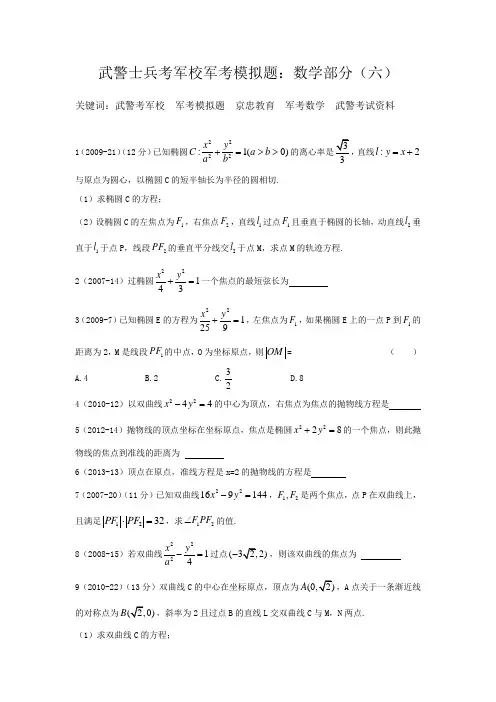 武警士兵考军校军考模拟题：数学部分（六）
关键词：武警考军校 军考模拟题 京忠教育 军考数学 武警考试资料
1（2009-21）（12分）已知椭圆 $C:\frac{x^2}{a^2}+\frac{y^2}{b^2}=1(a>b>0)$ 的离心率是 $\frac{\sqrt{3}}{3}$，直线 $l:y=x+2$
与原点为圆心，以椭圆C的短半轴长为半径的圆相切.
（1）求椭圆C的方程；
（2）设椭圆C的左焦点为 $F_1$，右焦点 $F_2$，直线 $l_1$ 过点 $F_1$ 且垂直于椭圆的长轴，动直线 $l_2$ 垂
直于 $l_1$ 于点P，线段 $PF_2$ 的垂直平分线交 $l_2$ 于点M，求点M的轨迹方程.
2（2007-14）过椭圆 $\frac{x^2}{4}+\frac{y^2}{3}=1$ 一个焦点的最短弦长为
3（2009-7）已知椭圆E的方程为 $\frac{x^2}{25}+\frac{y^2}{9}=1$，左焦点为 $F_1$，如果椭圆E上的一点P到 $F_1$ 的
距离为2，M是线段 $PF_1$ 的中点，O为坐标原点，则 $|OM|$= （ ）
A.4 B.2 C.$\frac{3}{2}$ D.8
4（2010-12）以双曲线 $x^2-4y^2=4$ 的中心为顶点，右焦点为焦点的抛物线方程是
5（2012-14）抛物线的顶点坐标在坐标原点，焦点是椭圆 $x^2+2y^2=8$ 的一个焦点，则此抛
物线的焦点到准线的距离为
6（2013-13）顶点在原点，准线方程是x=2的抛物线的方程是
7（2007-20）（11分）已知双曲线 $16x^2-9y^2=144$，$F_1,F_2$ 是两个焦点，点P在双曲线上，
且满足 $PF_1\cdot PF_2=32$，求 $\angle F_1PF_2$ 的值.
8（2008-15）若双曲线 $\frac{x^2}{a^2}-\frac{y^2}{4}=1$ 过点 $(-3\sqrt{2},2)$，则该双曲线的焦点为
9（2010-22）（13分）双曲线C的中心在坐标原点，顶点为 $A(0,\sqrt{2})$，A点关于一条渐近线
的对称点为 $B(\sqrt{2},0)$，斜率为2且过点B的直线L交双曲线C与M，N两点.
（1）求双曲线C的方程；